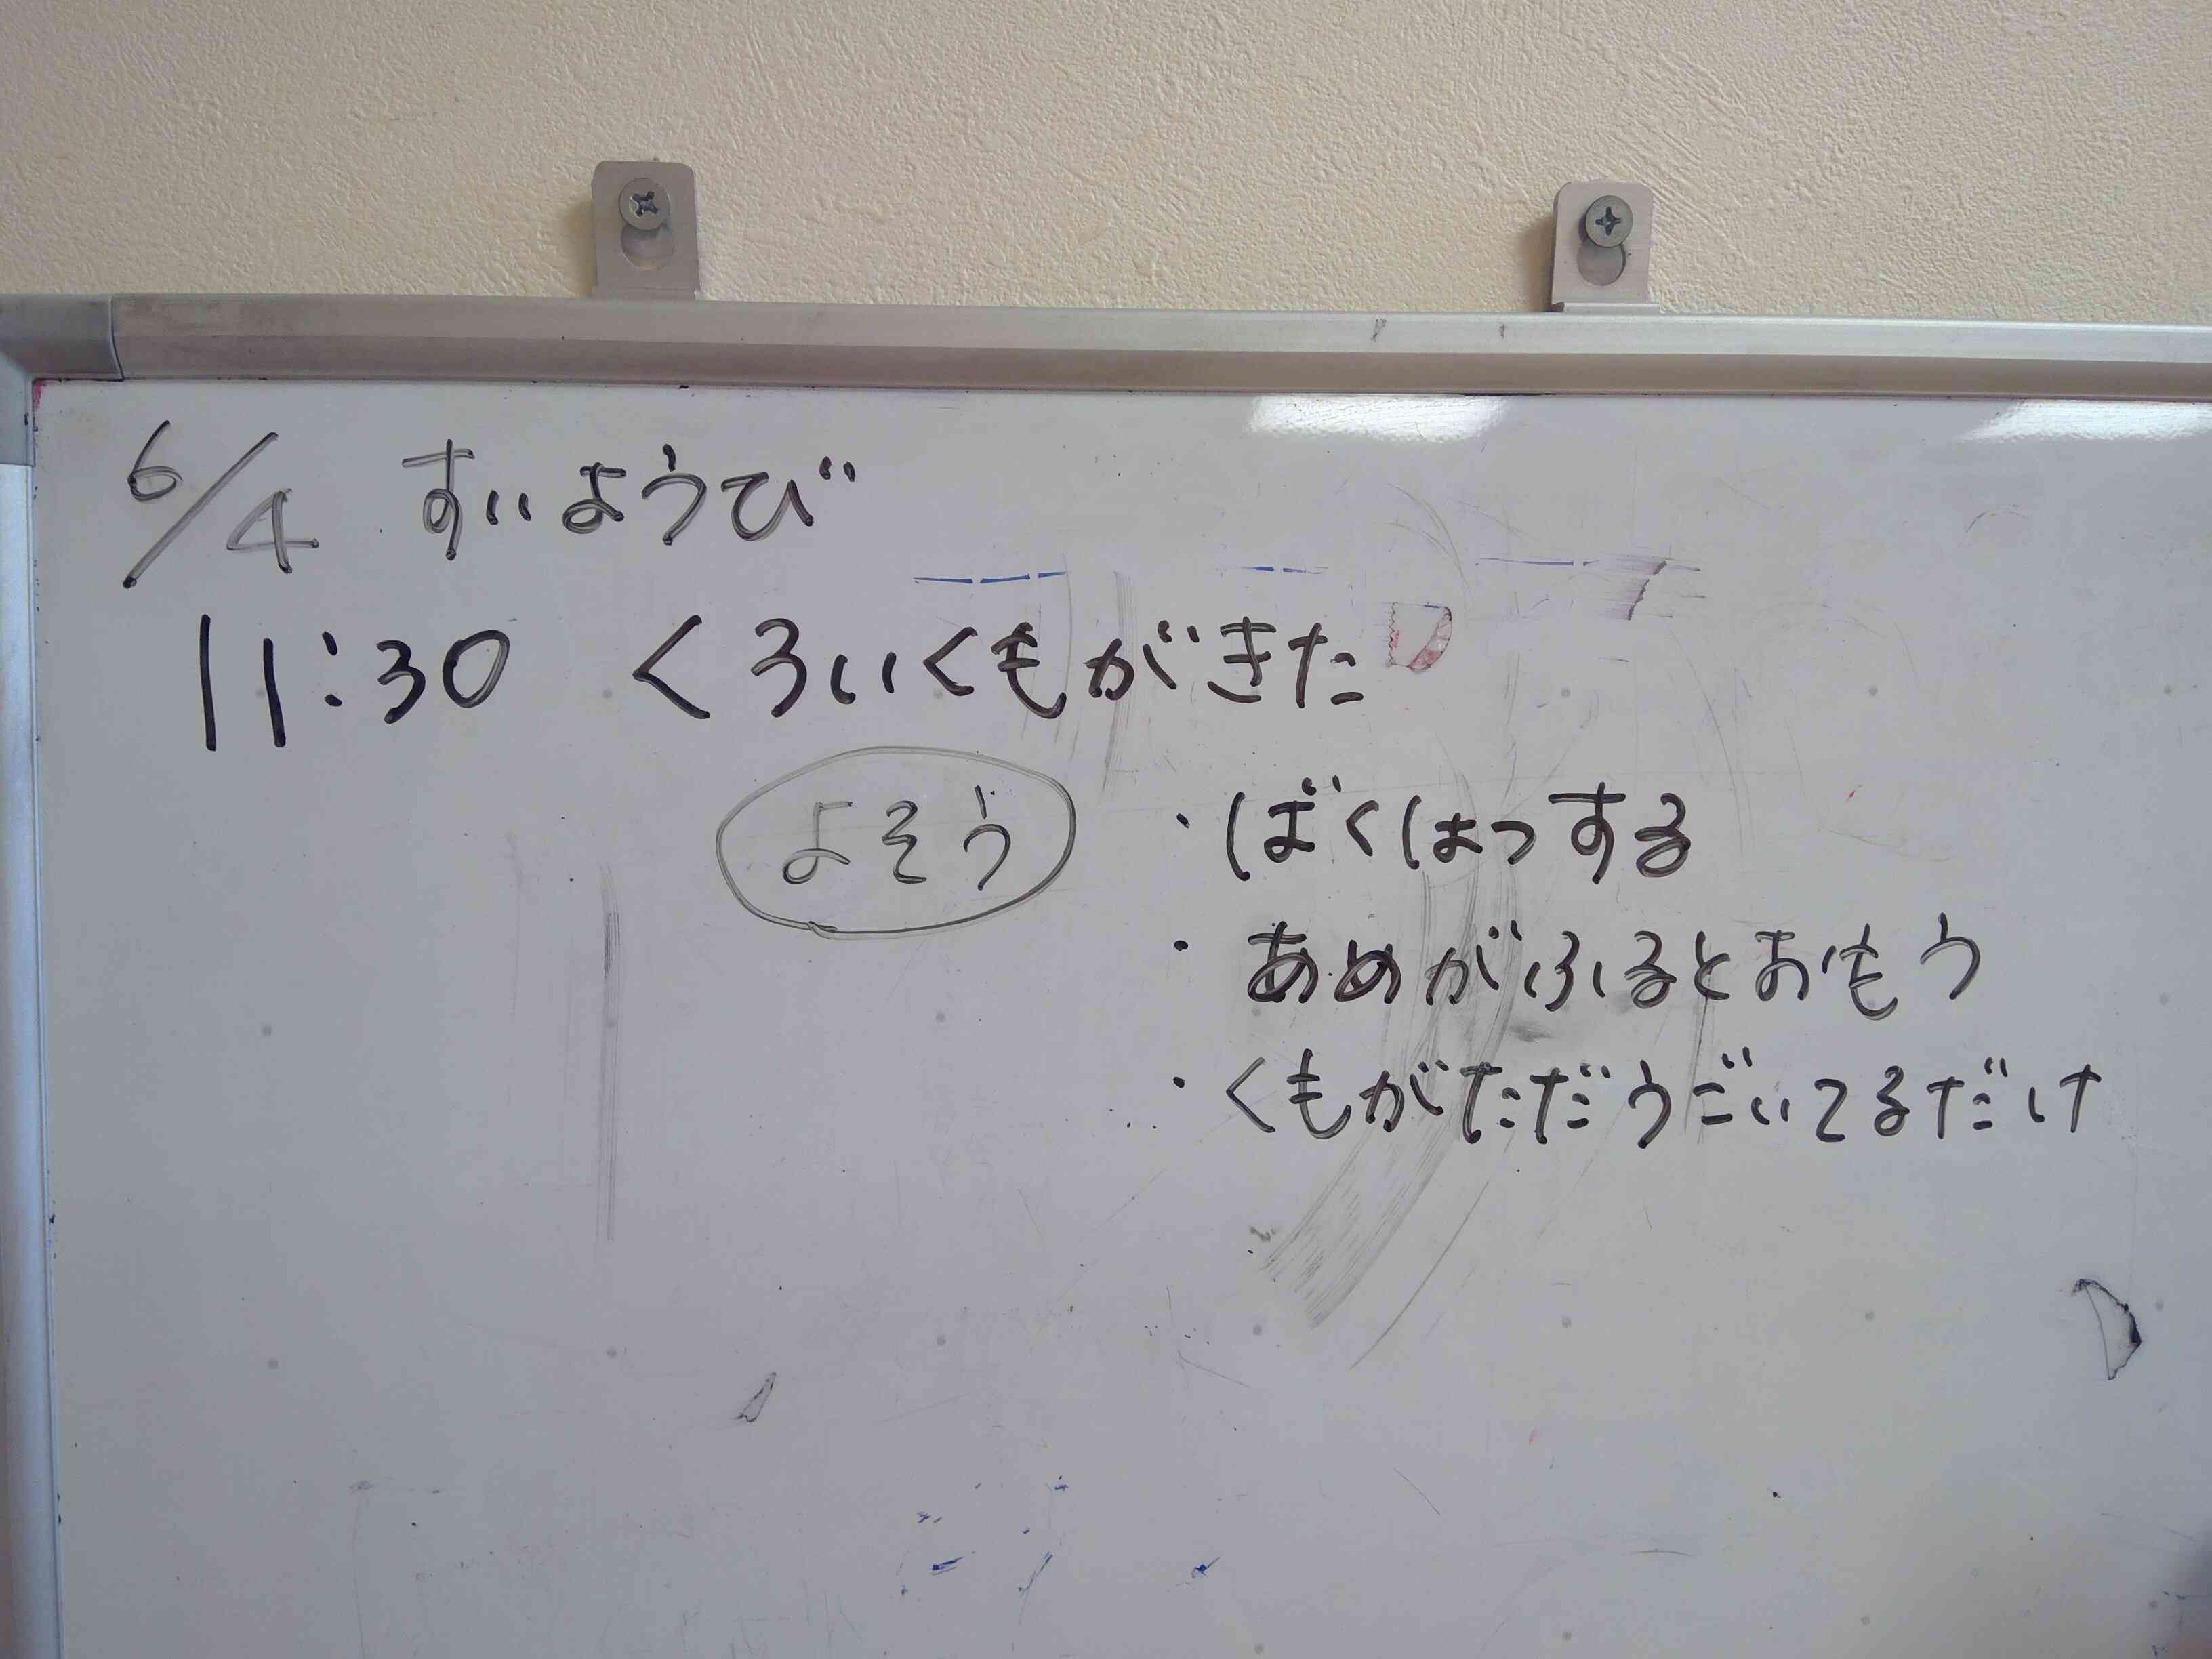 6/4 すいようび
11:30 くろいくもがきた
よそう ・ばくはつする
・あめがふるとおもう
・くもがただうごいてるだけ